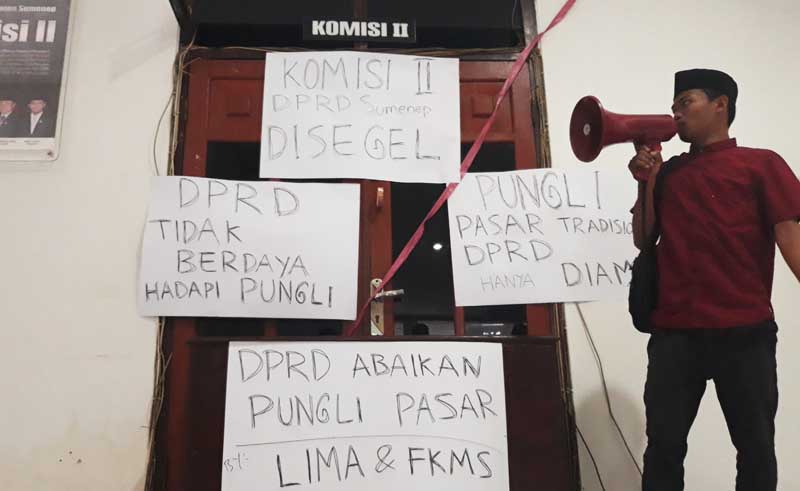 Sumenep
isi II
KOMISI II
KOMISI II
DPRD Sumenep
DISEGEL
DPRD
TIDAK
BERDAYA
HADAPI PUNGLI
PUNGLI
PASAR TRADISIO
DPRD
HANYA DIAM
DPRD ABAIKAN
PUNGLI PASAR
BY: LIMA & FKMS